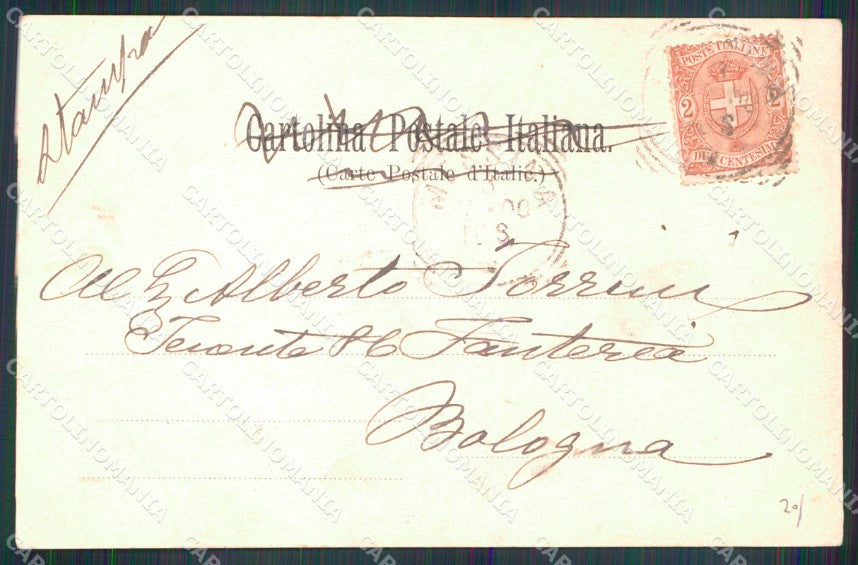 Stampa
Cartolina Postale Italiana.
(Carte Postale d'Italie.)
POSTE ITALIANE
2 2
DUE CENTESIMI
Alberto Torrini
Tenente 86 Fanteria
Bologna
20/
CARTOLINOMANIA